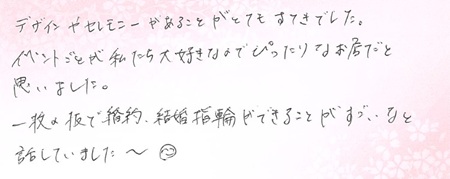 デザインやセレモニーがあることがとてもすてきでした。
イベントごとが私たち大好きなのでぴったりなお店だと
思いました。
一枚の板で婚約、結婚指輪ができることがすごいなと
話していました〜☺